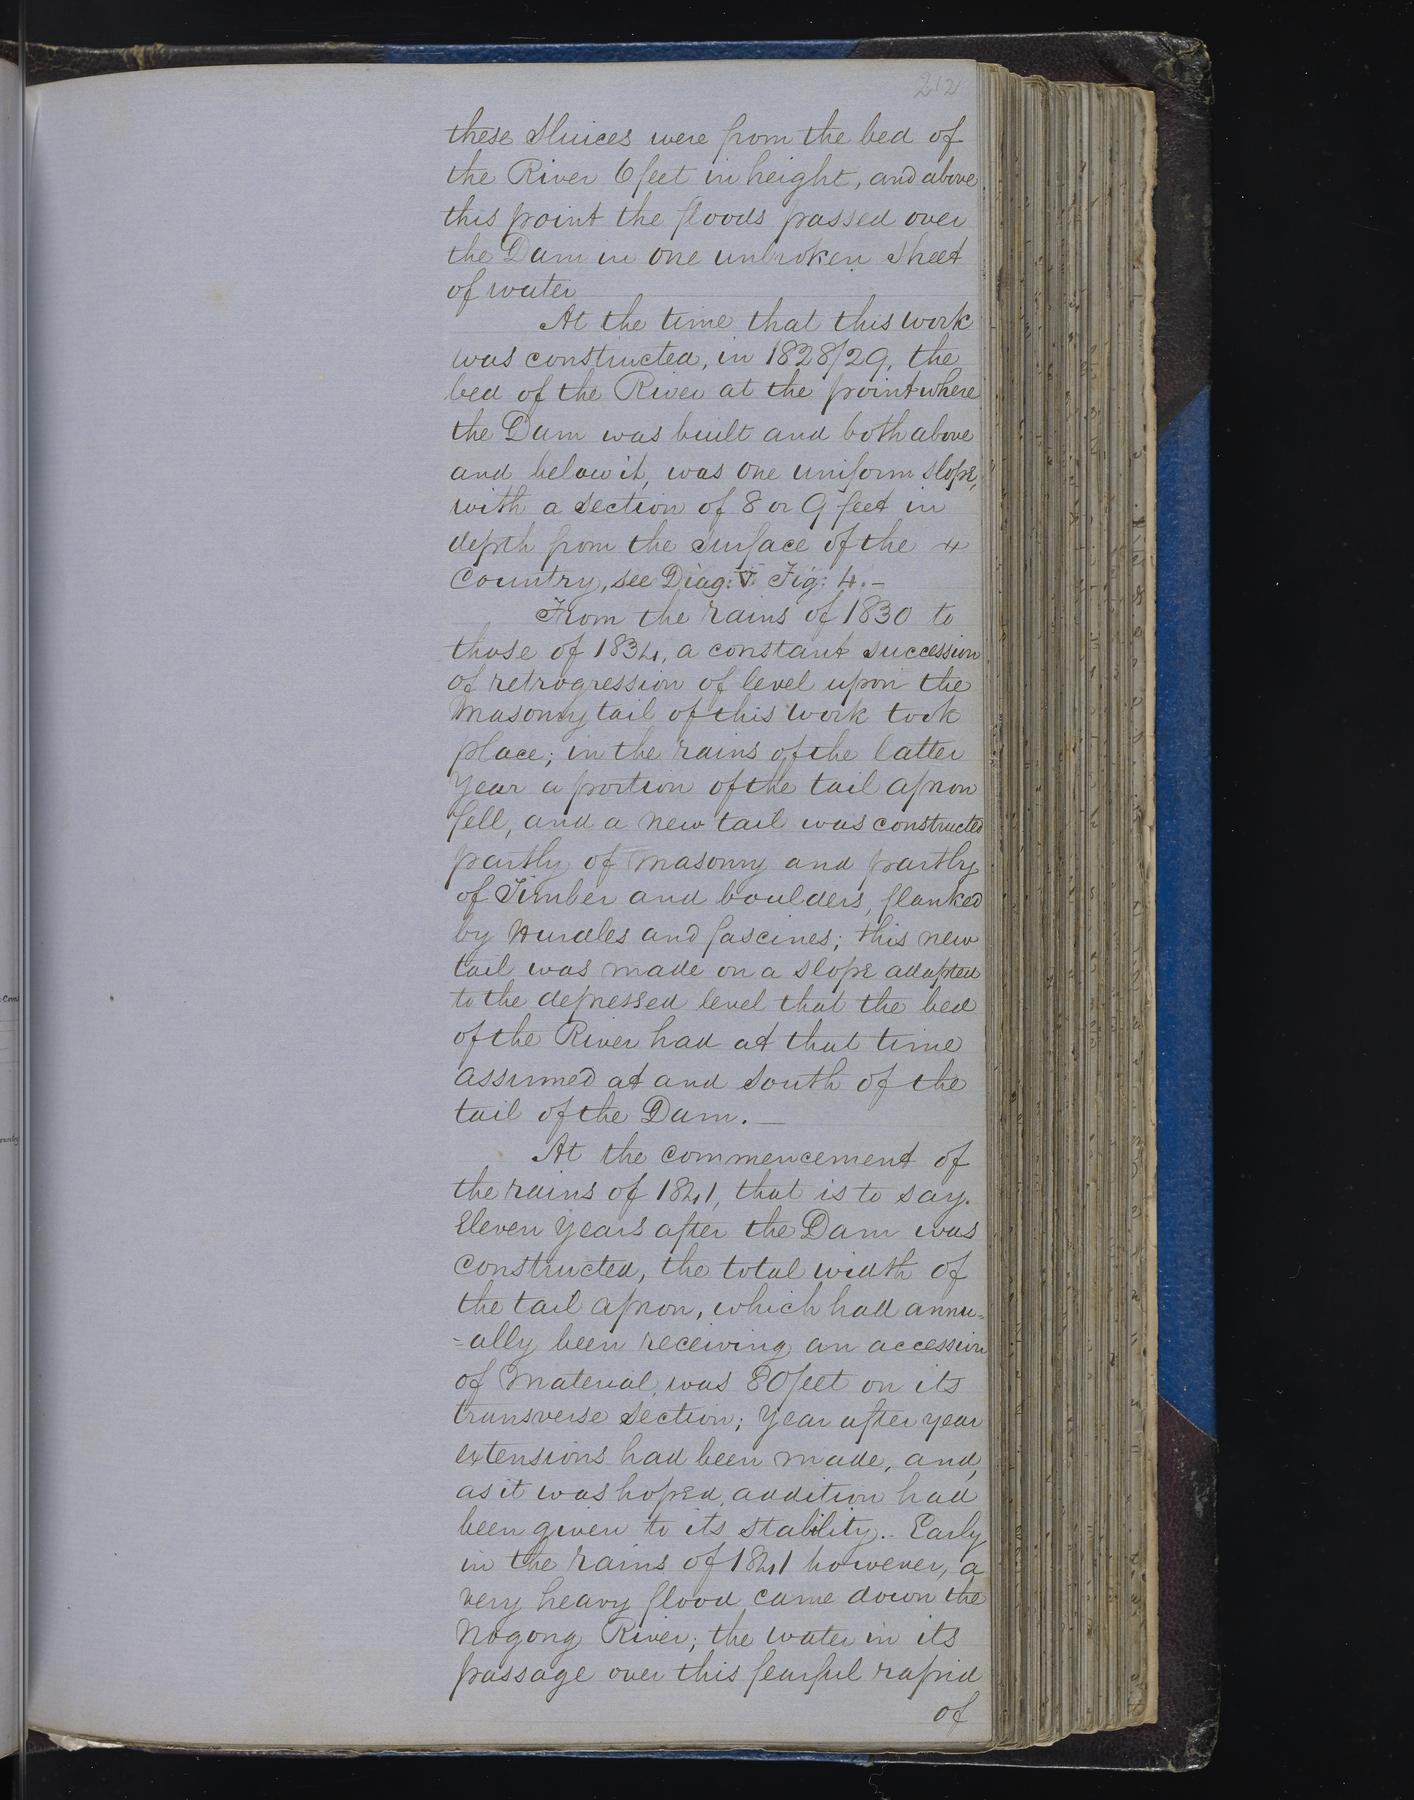 212
these Sluices were from the bed of
the River 6 feet in height, and above
this point the floods passed over
the Dam in one unbroken sheet
of water
At the time that this work
was constructed, in 1828/29, the
bed of the River at the point where
the Dam was built and both above
and below it, was one uniform slope,
with a section of 8 or 9 feet in
depth from the surface of the
Country, see Diag: V. Fig: 4.-
From the rains of 1830 to
those of 1834, a constant succession
of retrogression of level upon the
Masonry tail of this work took
place; in the rains of the latter
Year a portion of the tail apron
fell, and a new tail was constructed
partly of masonry and partly
of Timber and boulders, flanked
by Hurdles and fascines; this new
tail was made on a slope adapted
to the depressed level that the bed
of the River had at that time
assumed at and South of the
tail of the Dam. —
At the commencement of
the rains of 1841, that is to say.
Eleven Years after the Dam was
constructed, the total width of
the tail apron, which had annu=
=ally been receiving an accession
of Material, was 80 feet on its
transverse section; Year after year
extensions had been made, and,
as it was hoped, addition had
been given to its stability.. Early
in the rains of 1841 however, a
very heavy flood came down the
Nogong River; the water in its
passage over this fearful rapid
of